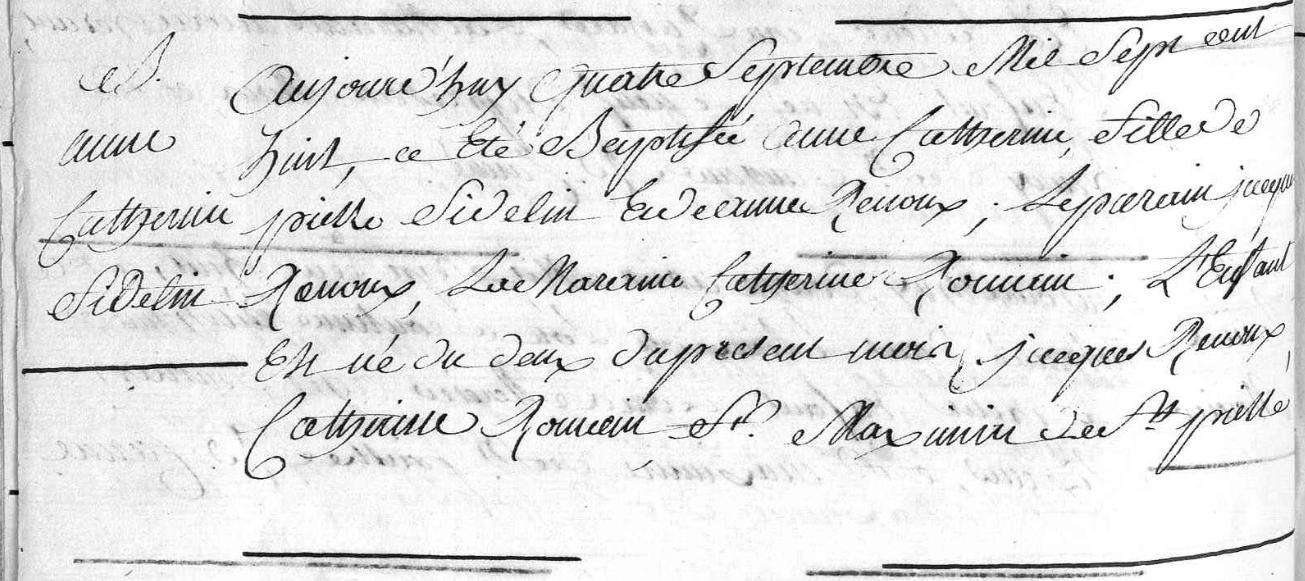 B.
anne
Catherine
fidelin
aujourd'huy quatre Septembre Mil Sept cent
huit, a Eté Baptisée anne Catherine, fille de
pierre fidelin Et de anne Renoux; Le parain jacques
Renoux, La Maraine Catherine Romain; L'Enfant
Est né du deux du present mois, jacques Renoux,
Catherine Romain, fr. Maximin de St pierre